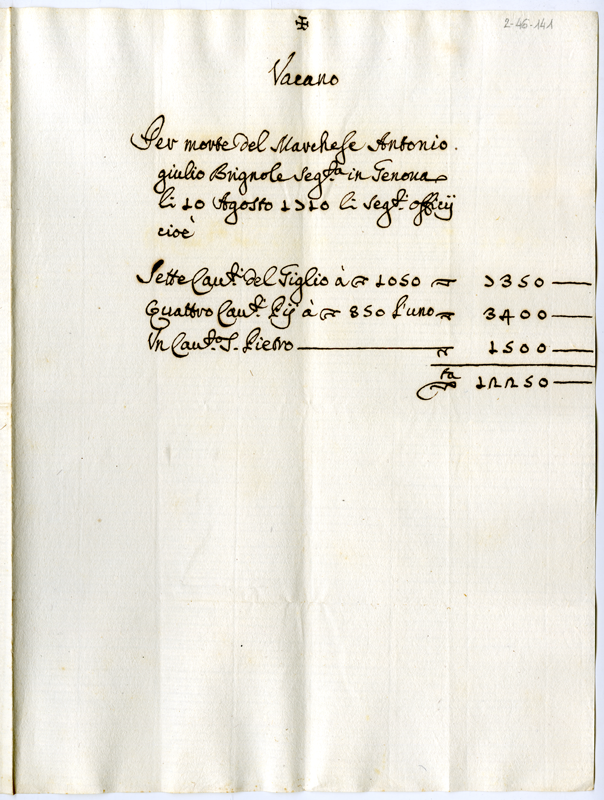 ✠
2-46-141
Vacano
Per morte del Marchese Antonio
giulio Brignole Seg.ta in Genova
li 10 Agosto 1710 li Seg.ti officij
cioè
Sette Cau.ti del Giglio à ∇ 1050 ∇ 7350 —
Quattro Cau.ti Pij à ∇ 850 l'uno ∇ 3400 —
Un Cau.to S. Pietro ∇ 1500 —
∇ta 12250 —